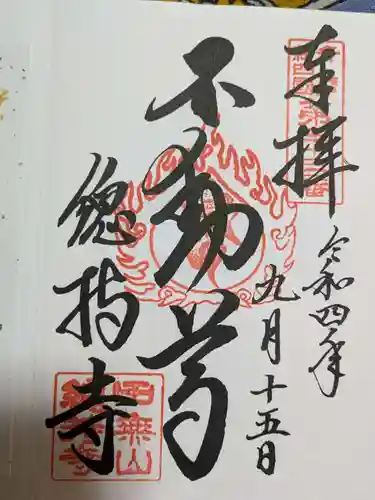 奉拝
令和四年
九月十五日
不動尊
總持寺